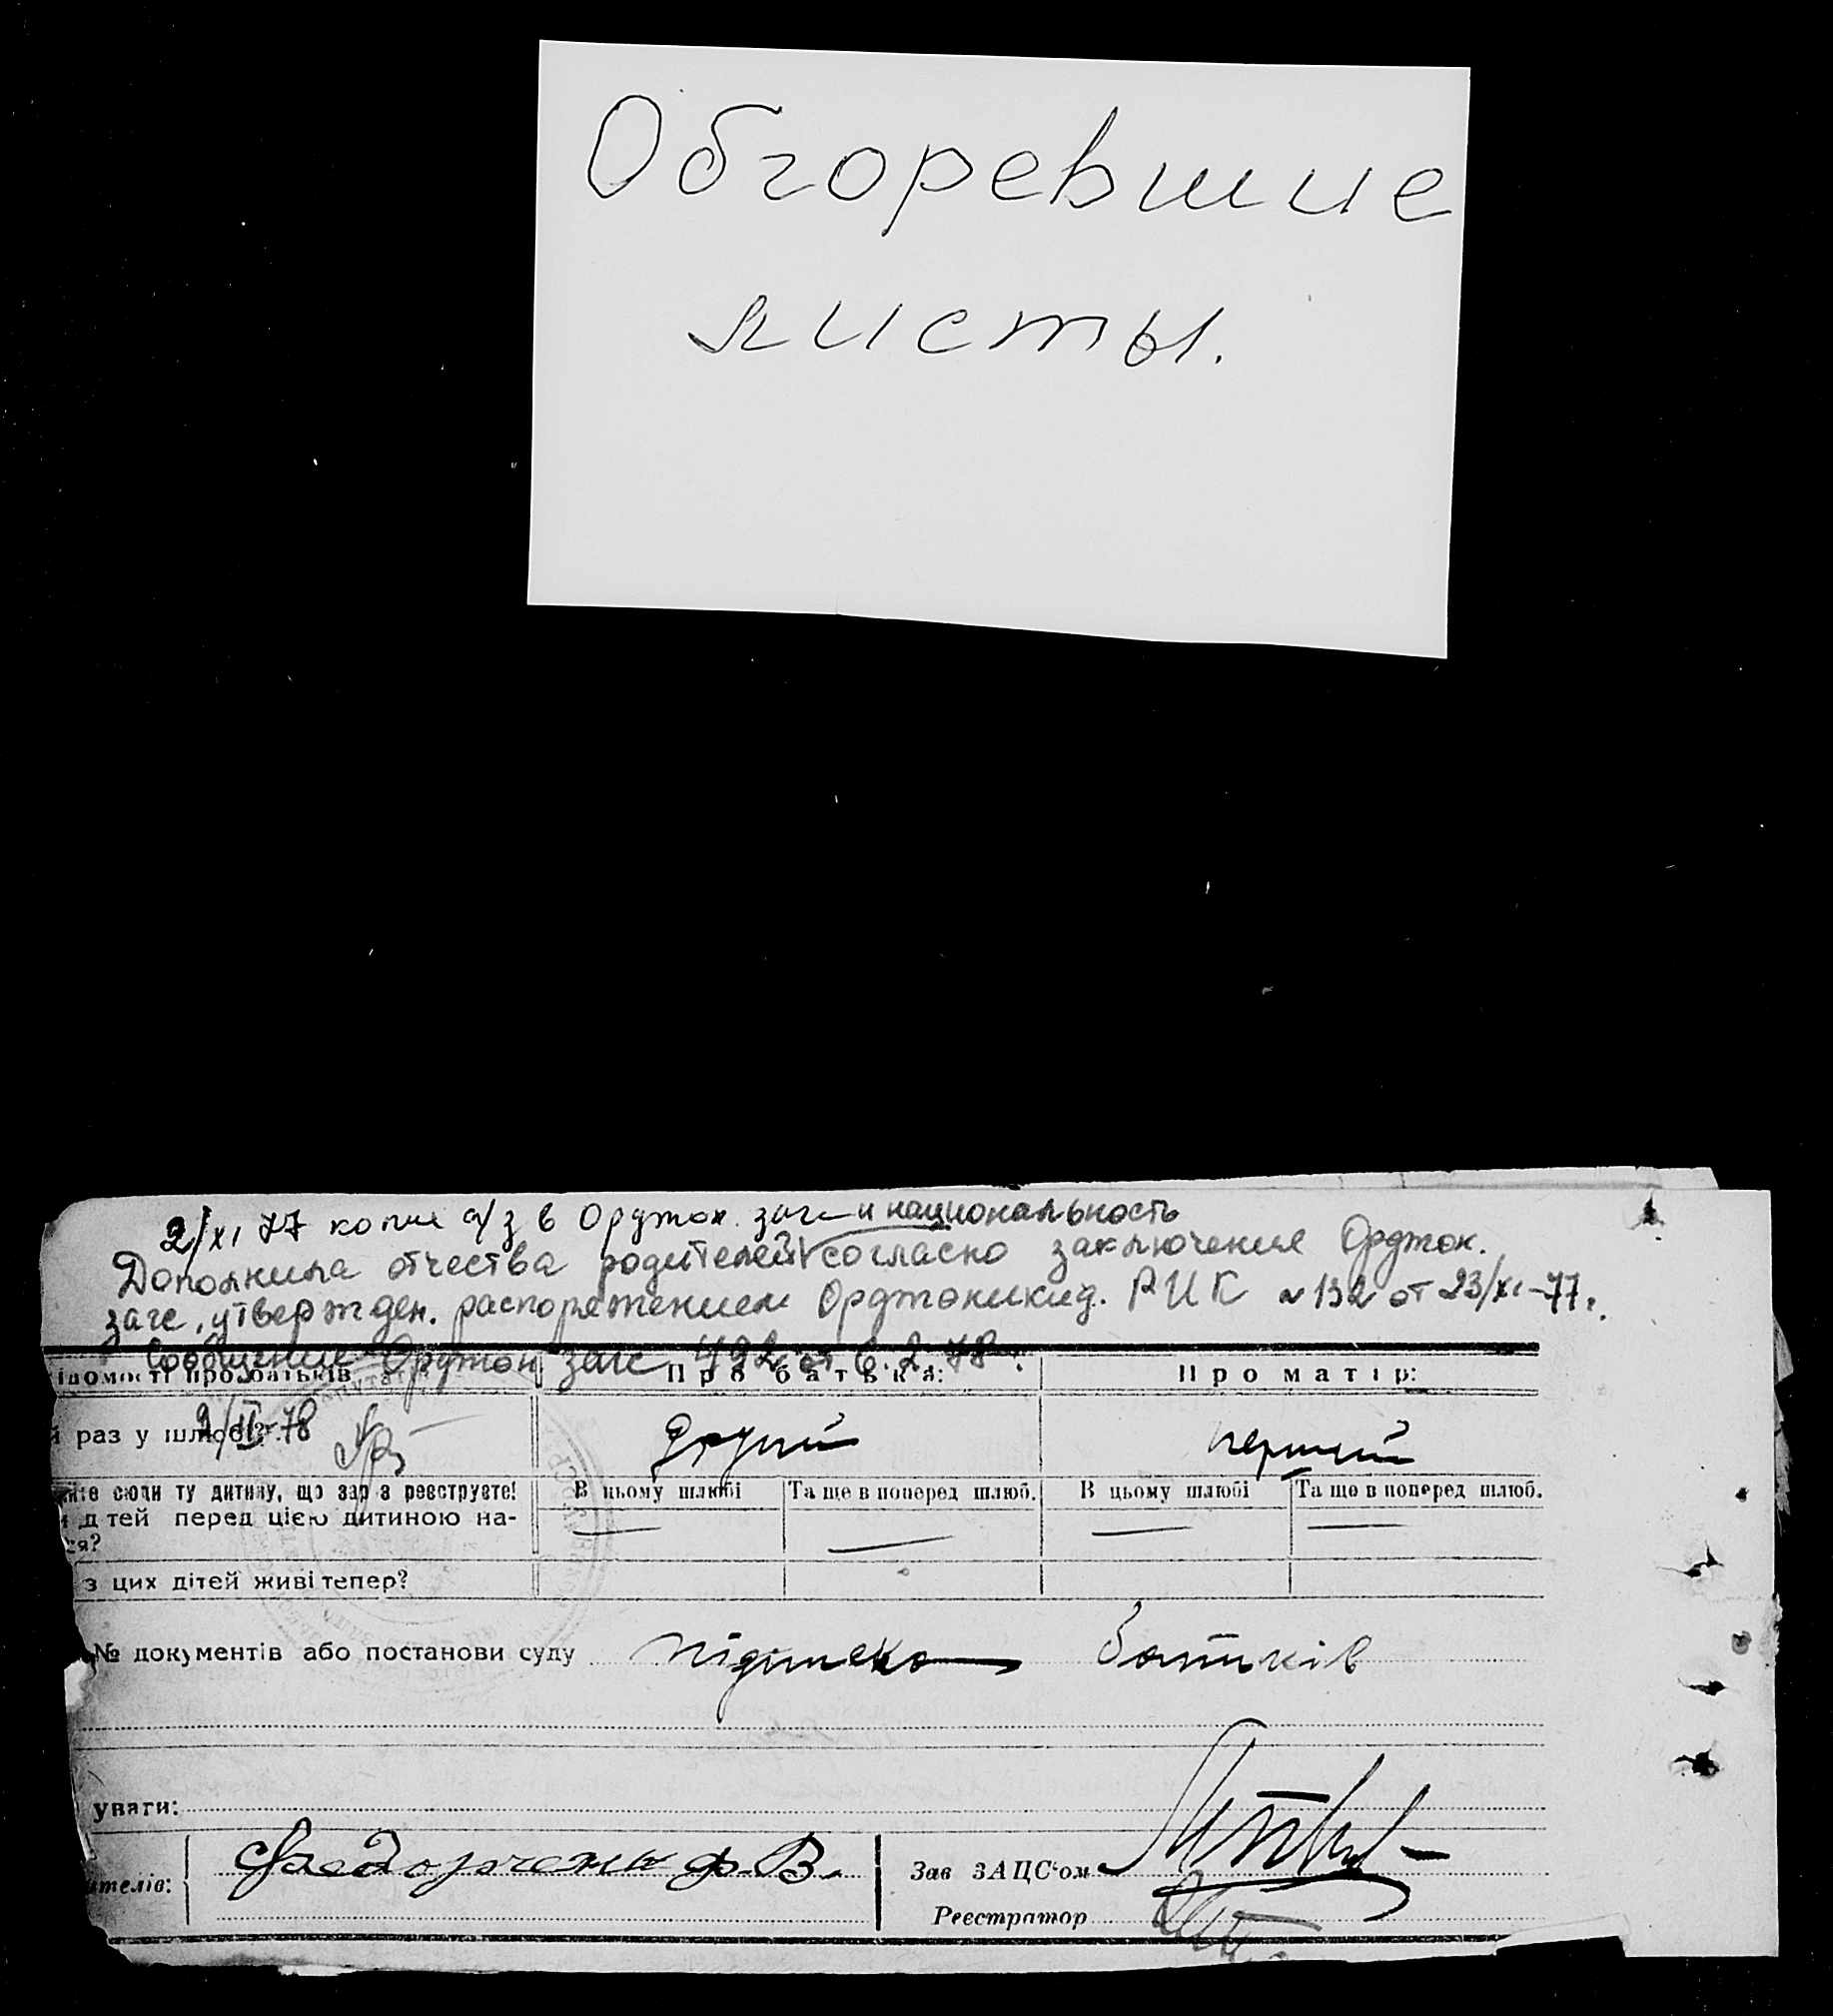 Обгоревшие
листы.
2/XI 77 копие а/з в Орджон. загс и национальность
Дополнила отчества родителей согласно заключения Орджон.
загс, утвержден. распоряжением Орджоникид. РИК № 132 от 23/XI-77г.
Сообщение Орджон загс 492 от 6.2.78г.
ідомості про батьків
Про батька:
Про матір:
раз у шлюбі?
9/II-78
другий
перший
йте сюди ту дитину, що зараз реєструєте!
В цьому шлюбі
Та ще в поперед шлюб.
В цьому шлюбі
Та ще в поперед шлюб.
дітей перед цією дитиною на-
ся?
з цих дітей живі тепер?
№ документів або постанови суду підписка батьків
уваги:
ителів:
Федорченко Ф.В.
Зав ЗАЦС'ом
Реєстратор